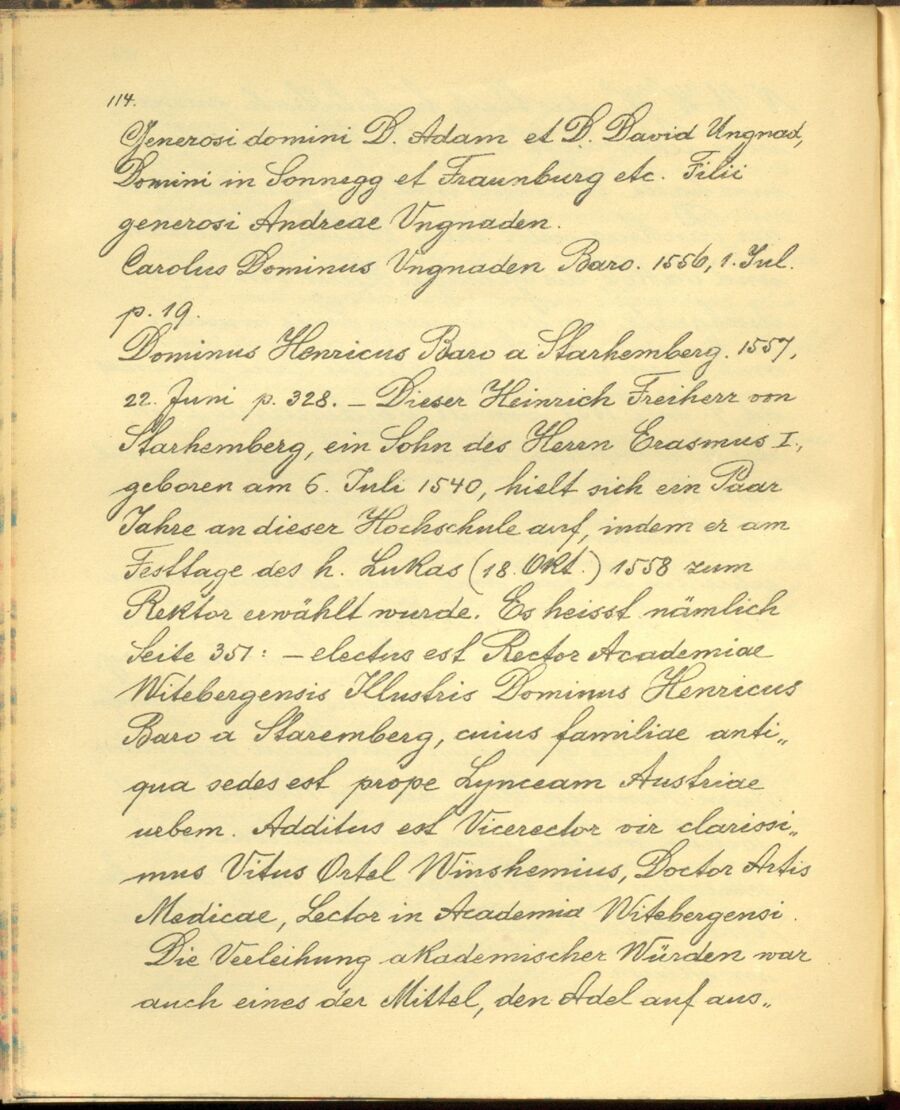 114.
Generosi domini D. Adam et D. David Ungnad,
Domini in Sonnegg et Fraunburg etc. Filii
generosi Andreae Vngnaden.
Carolus Dominus Vngnaden Baro. 1556, 1. Jul.
p. 19.
Dominus Henricus Baro a Starhemberg. 1557,
22. Juni p. 328. – Dieser Heinrich Freiherr von
Starhemberg, ein Sohn des Herrn Erasmus I.,
geboren am 6. Juli 1540, hielt sich ein Paar
Jahre an dieser Hochschule auf, indem er am
Festtage des h. Lukas (18. Okt.) 1558 zum
Rektor erwählt wurde. Es heisst nämlich
Seite 351: – electus est Rector Academiae
Witebergensis Illustris Dominus Henricus
Baro a Staremberg, cuius familiae anti„
qua sedes est prope Lynceam Austriae
urbem. Additus est Vicerector vir clarissi„
mus Vitus Ortel Winshemius, Doctor Artis
Medicae, Lector in Academia Witebergensi.
Die Verleihung akademischer Würden war
auch eines der Mittel, den Adel auf aus„